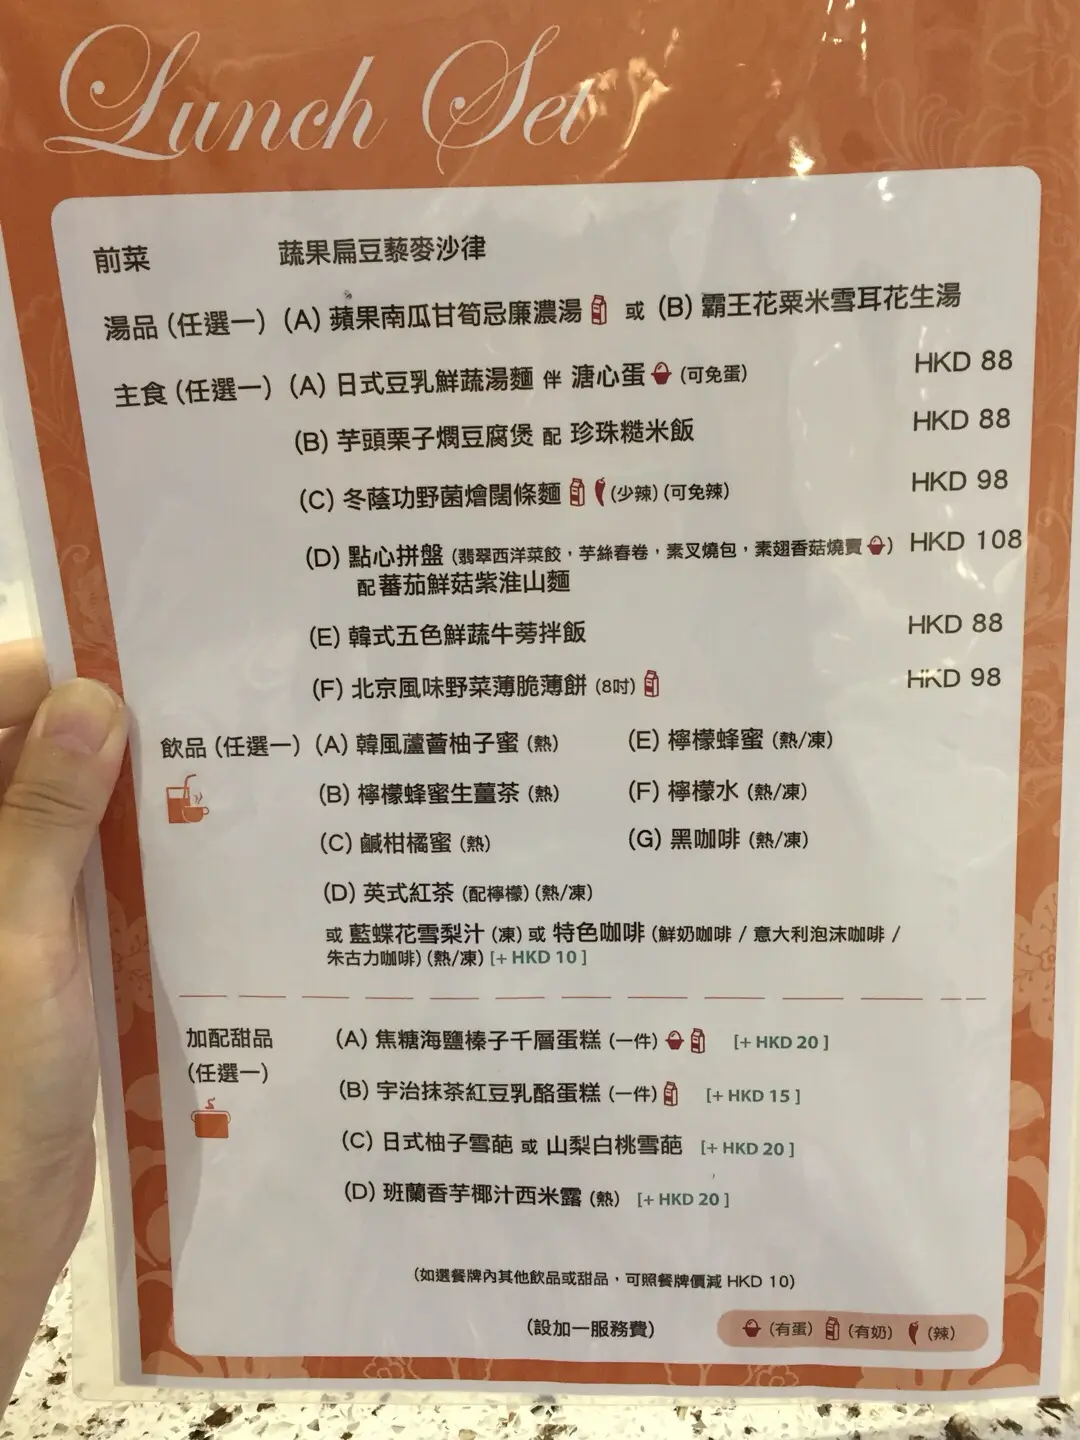 Lunch Set
前菜 蔬果扁豆藜麥沙律
湯品 (任選一) (A) 蘋果南瓜甘筍忌廉濃湯 或 (B) 霸王花粟米雪耳花生湯
主食 (任選一) (A) 日式豆乳鮮蔬湯麵 伴 溏心蛋 (可免蛋) HKD 88
(B) 芋頭栗子燜豆腐煲 配 珍珠糙米飯 HKD 88
(C) 冬蔭功野菌燴闊條麵 (少辣) (可免辣) HKD 98
(D) 點心拼盤 (翡翠西洋菜餃，芋絲春卷，素叉燒包，素翅香菇燒賣) HKD 108
配 蕃茄鮮菇紫淮山麵
(E) 韓式五色鮮蔬牛蒡拌飯 HKD 88
(F) 北京風味野菜薄脆薄餅 (8吋) HKD 98
飲品 (任選一) (A) 韓風蘆薈柚子蜜 (熱) (E) 檸檬蜂蜜 (熱/凍)
(B) 檸檬蜂蜜生薑茶 (熱) (F) 檸檬水 (熱/凍)
(C) 鹹柑橘蜜 (熱) (G) 黑咖啡 (熱/凍)
(D) 英式紅茶 (配檸檬) (熱/凍)
或 藍蝶花雪梨汁 (凍) 或 特色咖啡 (鮮奶咖啡 / 意大利泡沫咖啡 /
朱古力咖啡) (熱/凍) [+ HKD 10 ]
加配甜品 (A) 焦糖海鹽榛子千層蛋糕 (一件) [+ HKD 20 ]
(任選一)
(B) 宇治抹茶紅豆乳酪蛋糕 (一件) [+ HKD 15 ]
(C) 日式柚子雪葩 或 山梨白桃雪葩 [+ HKD 20 ]
(D) 班蘭香芋椰汁西米露 (熱) [+ HKD 20 ]
(如選餐牌內其他飲品或甜品，可照餐牌價減 HKD 10)
(設加一服務費) (有蛋) (有奶) (辣)